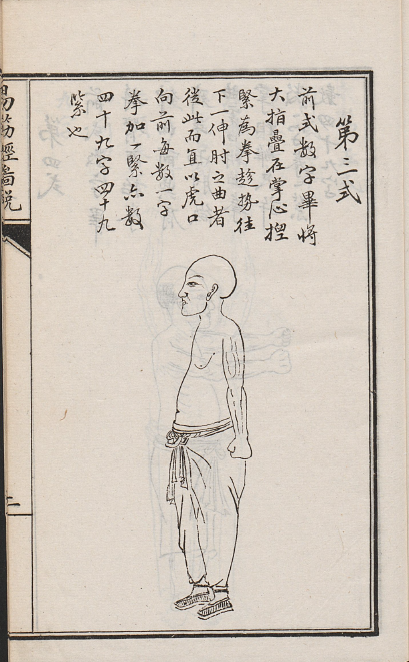 第三式
前式数字畢將
大指疊在掌心揑
緊為拳趁勢往
下一伸肘之曲者
從此而直以虎口
向前每数一字
拳加一緊亦数
四十九字四十九
緊也
易筋經啚説
二